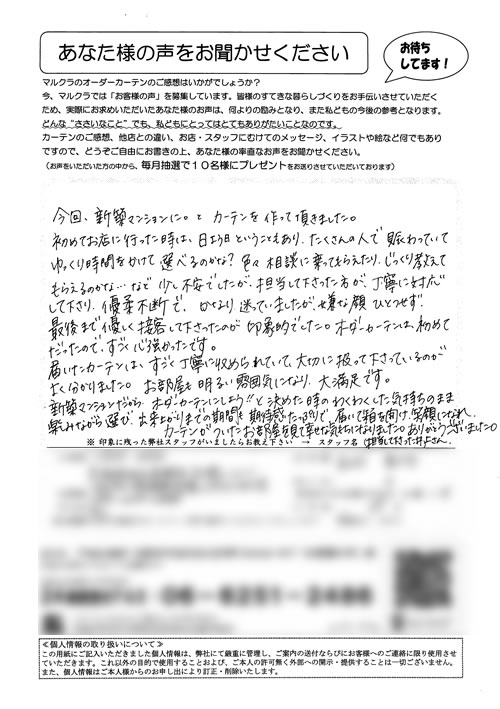 あなた様の声をお聞かせください
お待ち
してます！
マルクラのオーダーカーテンのご感想はいかがでしょうか？
今、マルクラでは「お客様の声」を募集しています。皆様のすてきな暮らしづくりをお手伝いさせていただく
ため、実際にお求めいただいたあなた様のお声は、何よりの励みとなり、また私どもの今後の参考となります。
どんな“ささいなこと”でも、私どもにとってはとてもありがたいことなのです。
カーテンのご感想、他店との違い、お店・スタッフにむけてのメッセージ、イラストや絵など何でもあり
ですので、どうぞご自由にお書きの上、あなた様の率直なお声をお聞かせください。
（お声をいただいた方の中から、毎月抽選で１０名様にプレゼントをお送りさせていただいております）
今回、新築マンションに。と カーテンを作って頂きました。
初めてお店に行った時は、日よう日ということもあり、たくさんの人で賑わっていて
ゆっくり時間をかけて選べるのかな？色々相談に乗ってもらえたり、じっくり教えて
もらえるのかな…など少し不安でしたが、担当して下さった方が、丁寧に対応
して下さり、優柔不断で、かなり迷っていましたが、嫌な顔ひとつせず、
最後まで優しく接客して下さったのが印象的でした。オーダーカーテンは、初めて
だったので、すごく心強かったです。
届いたカーテンは、すごく丁寧に収められていて、大切に扱って下さっているのが
よく分かりました。お部屋も明るい雰囲気になり、大満足です。
新築マンションだから、オーダーカーテンにしよう!!と決めた時のわくわくした気持ちのまま
楽みながら選び、出来上がりまでの期間も期待感たっぷりで、届いて箱を開け、笑顔になれ、
カーテンがついたお部屋を見て幸せな気持ちになりました。ありがとうございました。
※ 印象に残った弊社スタッフがいましたらお教え下さい → スタッフ名 担当して下さった井上さん。
06-6251-2486
≪個人情報の取り扱いについて≫
この用紙にご記入いただきました個人情報は、弊社にて厳重に管理し、ご案内の送付ならびにお客様へのご連絡に限り使用させ
ていただきます。これ以外の目的で使用することおよび、ご本人の許可無く外部への開示・提供することは一切ございません。
また、個人情報はご本人様からのお申し出により訂正・削除いたします。